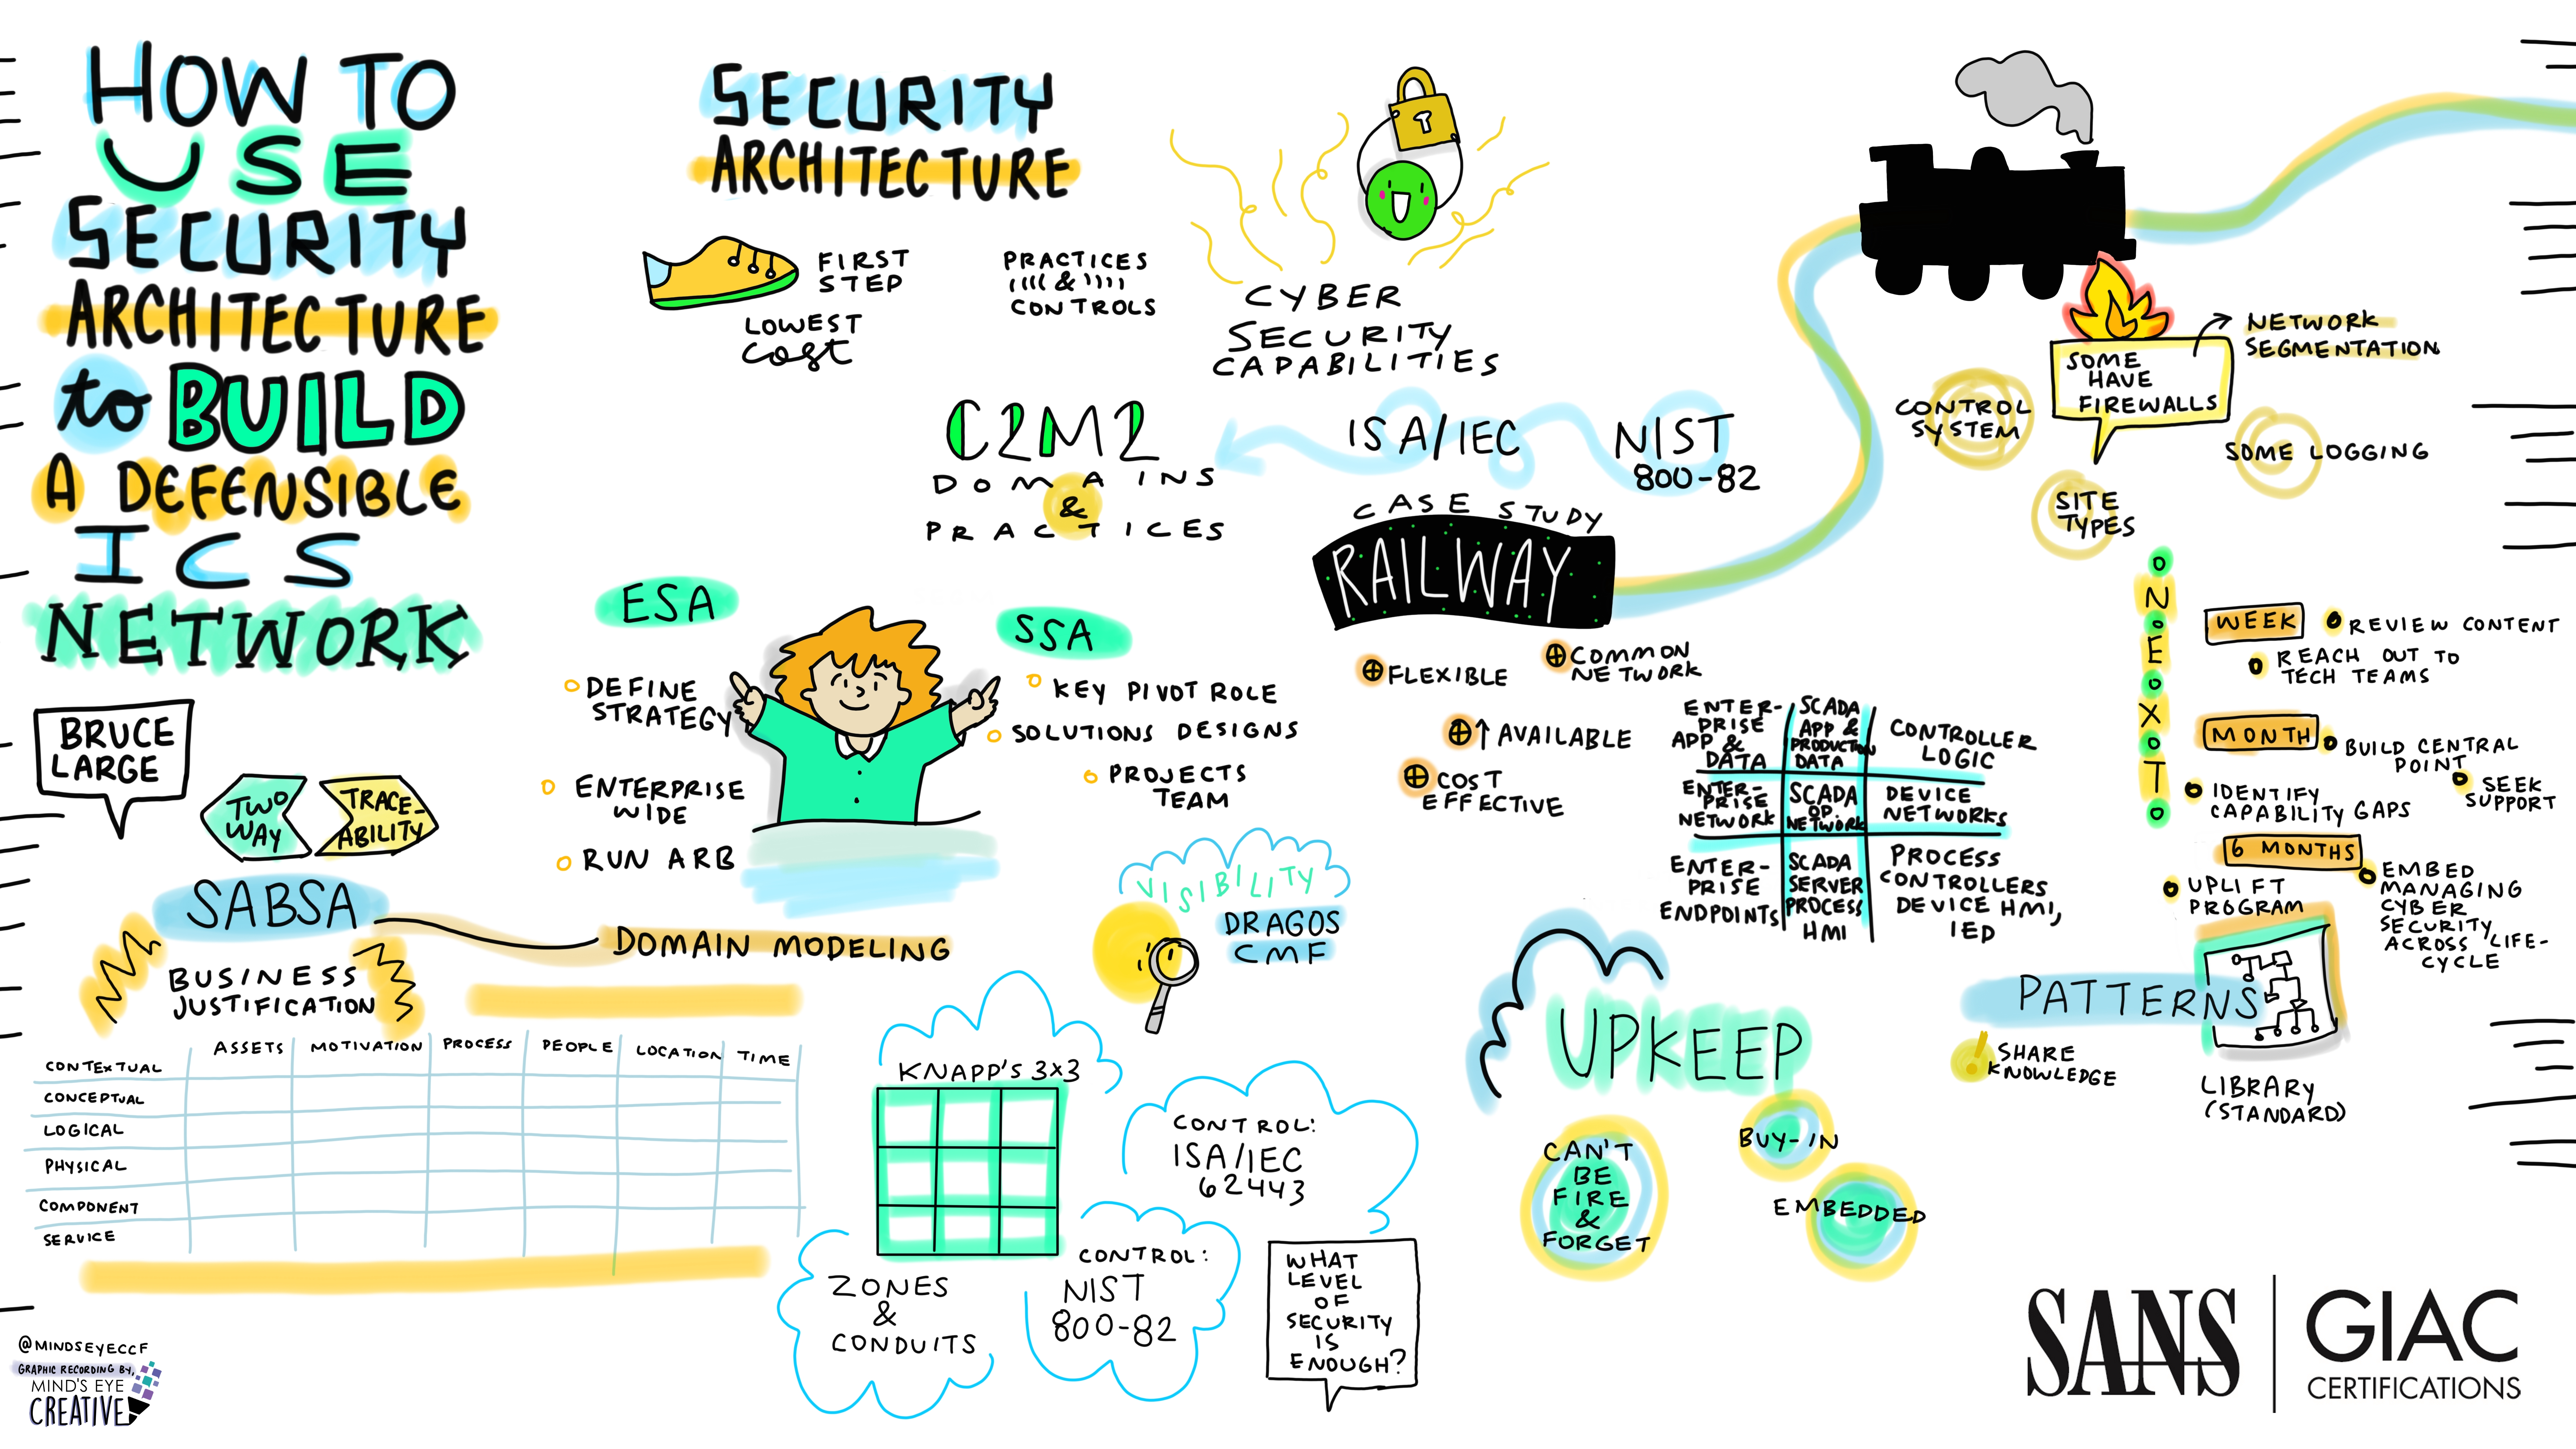 HOW TO
USE
SECURITY
ARCHITECTURE
to BUILD
A DEFENSIBLE
ICS
NETWORK
BRUCE
LARGE
TWO
WAY
TRACE-
ABILITY
SABSA
DOMAIN MODELING
BUSINESS
JUSTIFICATION
ASSETS MOTIVATION PROCESS PEOPLE LOCATION TIME
CONTEXTUAL
CONCEPTUAL
LOGICAL
PHYSICAL
COMPONENT
SERVICE
@MINDSEYECCF
GRAPHIC RECORDING BY,
MIND'S EYE
CREATIVE
SECURITY
ARCHITECTURE
FIRST
STEP
LOWEST
cost
PRACTICES
&
CONTROLS
CYBER
SECURITY
CAPABILITIES
C2M2
DOMAINS
&
PRACTICES
ISA/IEC
NIST
800-82
ESA
DEFINE
STRATEGY
ENTERPRISE
WIDE
RUN ARB
SSA
KEY PIVOT ROLE
SOLUTIONS DESIGNS
PROJECTS
TEAM
VISIBILITY
DRAGOS
CMF
KNAPP'S 3x3
ZONES
&
CONDUITS
CONTROL:
ISA/IEC
62443
CONTROL:
NIST
800-82
WHAT
LEVEL
OF
SECURITY
IS
ENOUGH?
CASE STUDY
RAILWAY
FLEXIBLE
COMMON
NETWORK
↑ AVAILABLE
COST
EFFECTIVE
ENTER-
PRISE
APP &
DATA
SCADA
APP &
PRODUCTION
DATA
CONTROLLER
LOGIC
ENTER-
PRISE
NETWORK
SCADA
OP.
NETWORK
DEVICE
NETWORKS
ENTER-
PRISE
ENDPOINTS
SCADA
SERVER
PROCESS
HMI
PROCESS
CONTROLLERS
DEVICE HMI,
IED
SOME
HAVE
FIREWALLS
NETWORK
SEGMENTATION
CONTROL
SYSTEM
SOME LOGGING
SITE
TYPES
ONEOXOTO
WEEK
REVIEW CONTENT
REACH OUT TO
TECH TEAMS
MONTH
BUILD CENTRAL
POINT
IDENTIFY
CAPABILITY GAPS
SEEK
SUPPORT
6 MONTHS
UPLIFT
PROGRAM
EMBED
MANAGING
CYBER
SECURITY
ACROSS LIFE-
CYCLE
UPKEEP
CAN'T
BE
FIRE
&
FORGET
BUY-IN
EMBEDDED
PATTERNS
! SHARE
KNOWLEDGE
LIBRARY
(STANDARD)
SANS
GIAC
CERTIFICATIONS